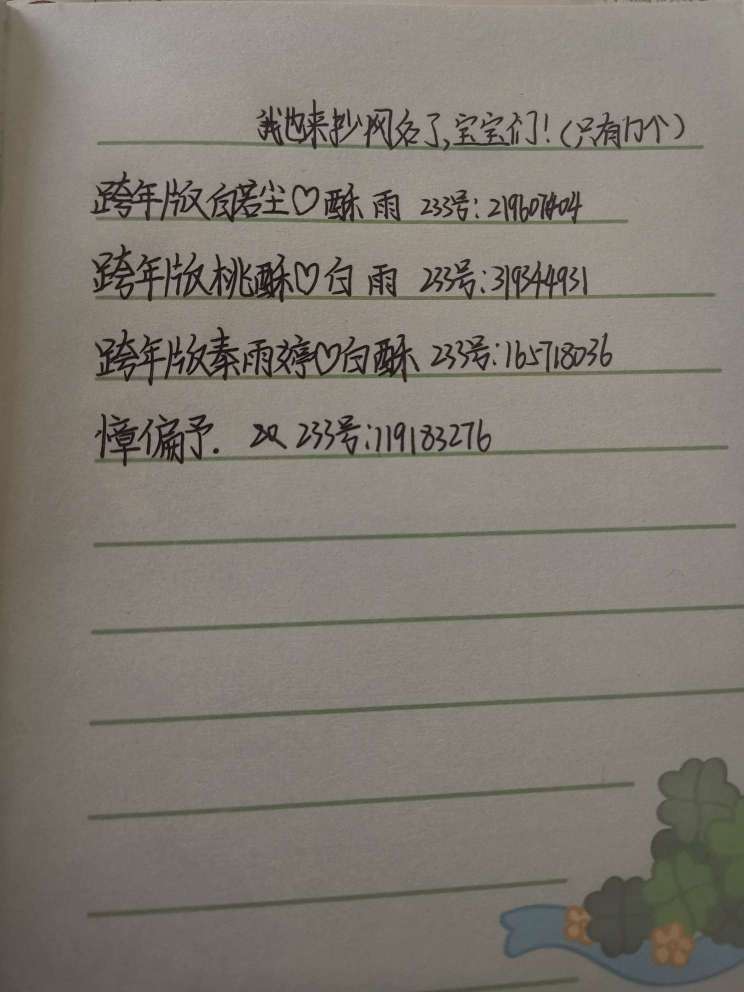 我也来抄网名了,宝宝们!(只有17个)
跨年版白若尘♡酥 雨 233号:219607404
跨年版桃酥♡白 雨 233号:319344931
跨年版秦雨婷♡白酥 233号:165718036
偏予. 233号:119183276